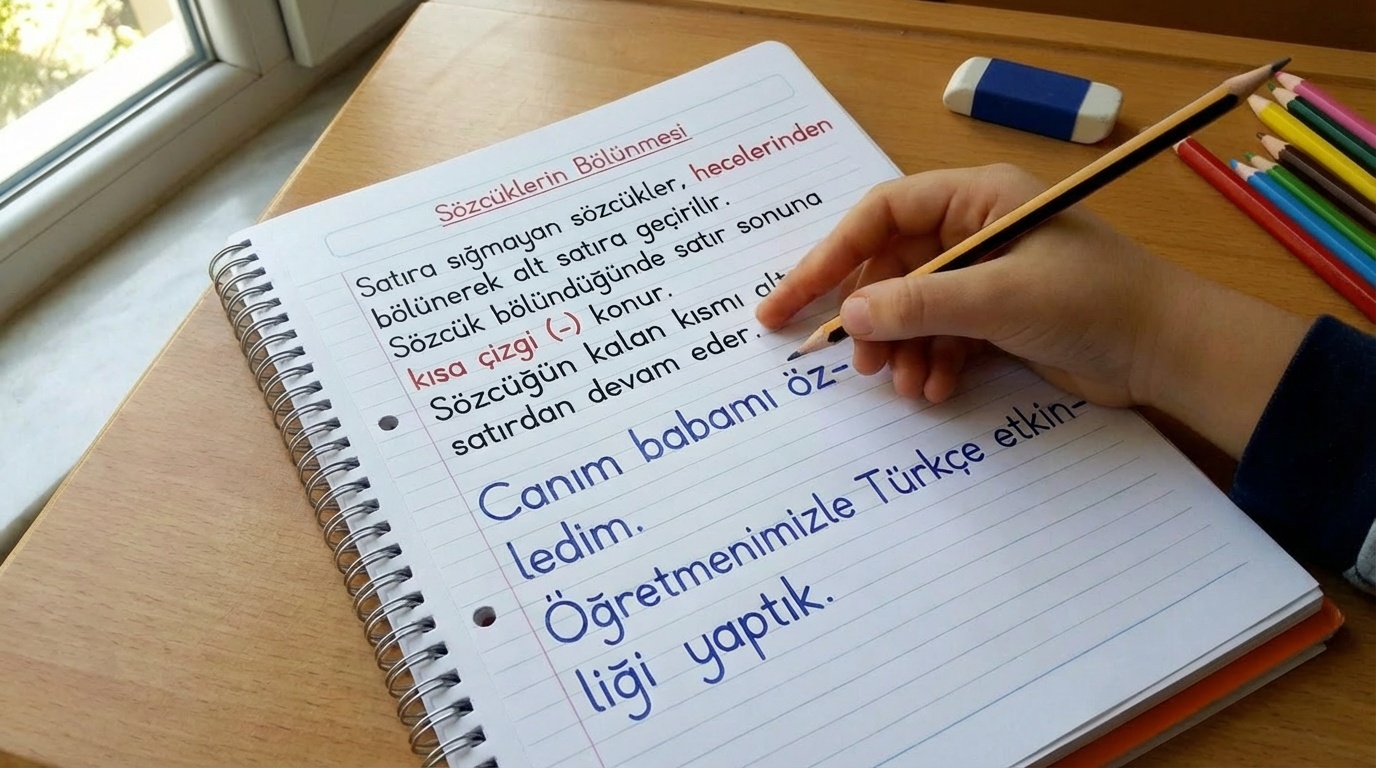 Sözcüklerin Bölünmesi
Satıra sığmayan sözcükler, hecelerinden
bölünerek alt satıra geçirilir.
Sözcük bölündüğünde satır sonuna
kısa çizgi (-) konur.
Sözcüğün kalan kısmı alt
satırdan devam eder.
Canım babamı öz-
ledim.
Öğretmenimizle Türkçe etkin-
liği yaptık.